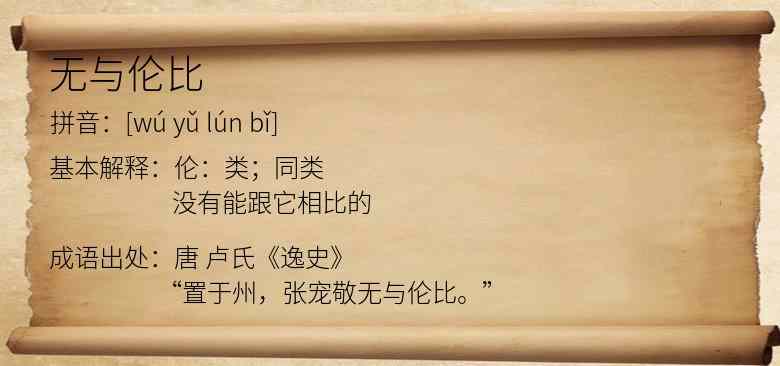 无与伦比
拼音：[wú yǔ lún bǐ]
基本解释：伦：类；同类
没有能跟它相比的
成语出处：唐 卢氏《逸史》
“置于州，张宠敬无与伦比。”